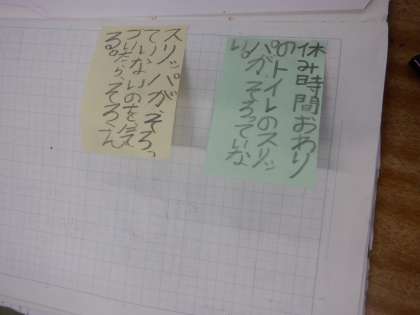 休み時間おわり
のトイレのスリッ
パが、そろっていな
い。
スリッパが、そろっ
ていないのを気
づいたら、そろえ
る。